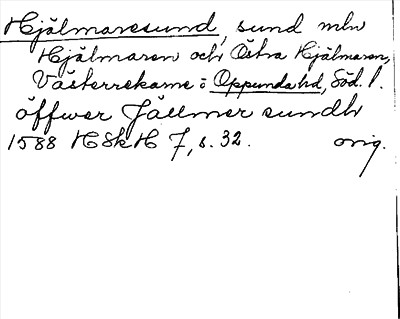 Hjälmaresund, sund mln
Hjälmaren och Östra Hjälmaren,
Västerrekarne o Oppunda hd, Söd. l.
öffwer Jällmer sundh
1588 HSkH 7, s. 32. orig.